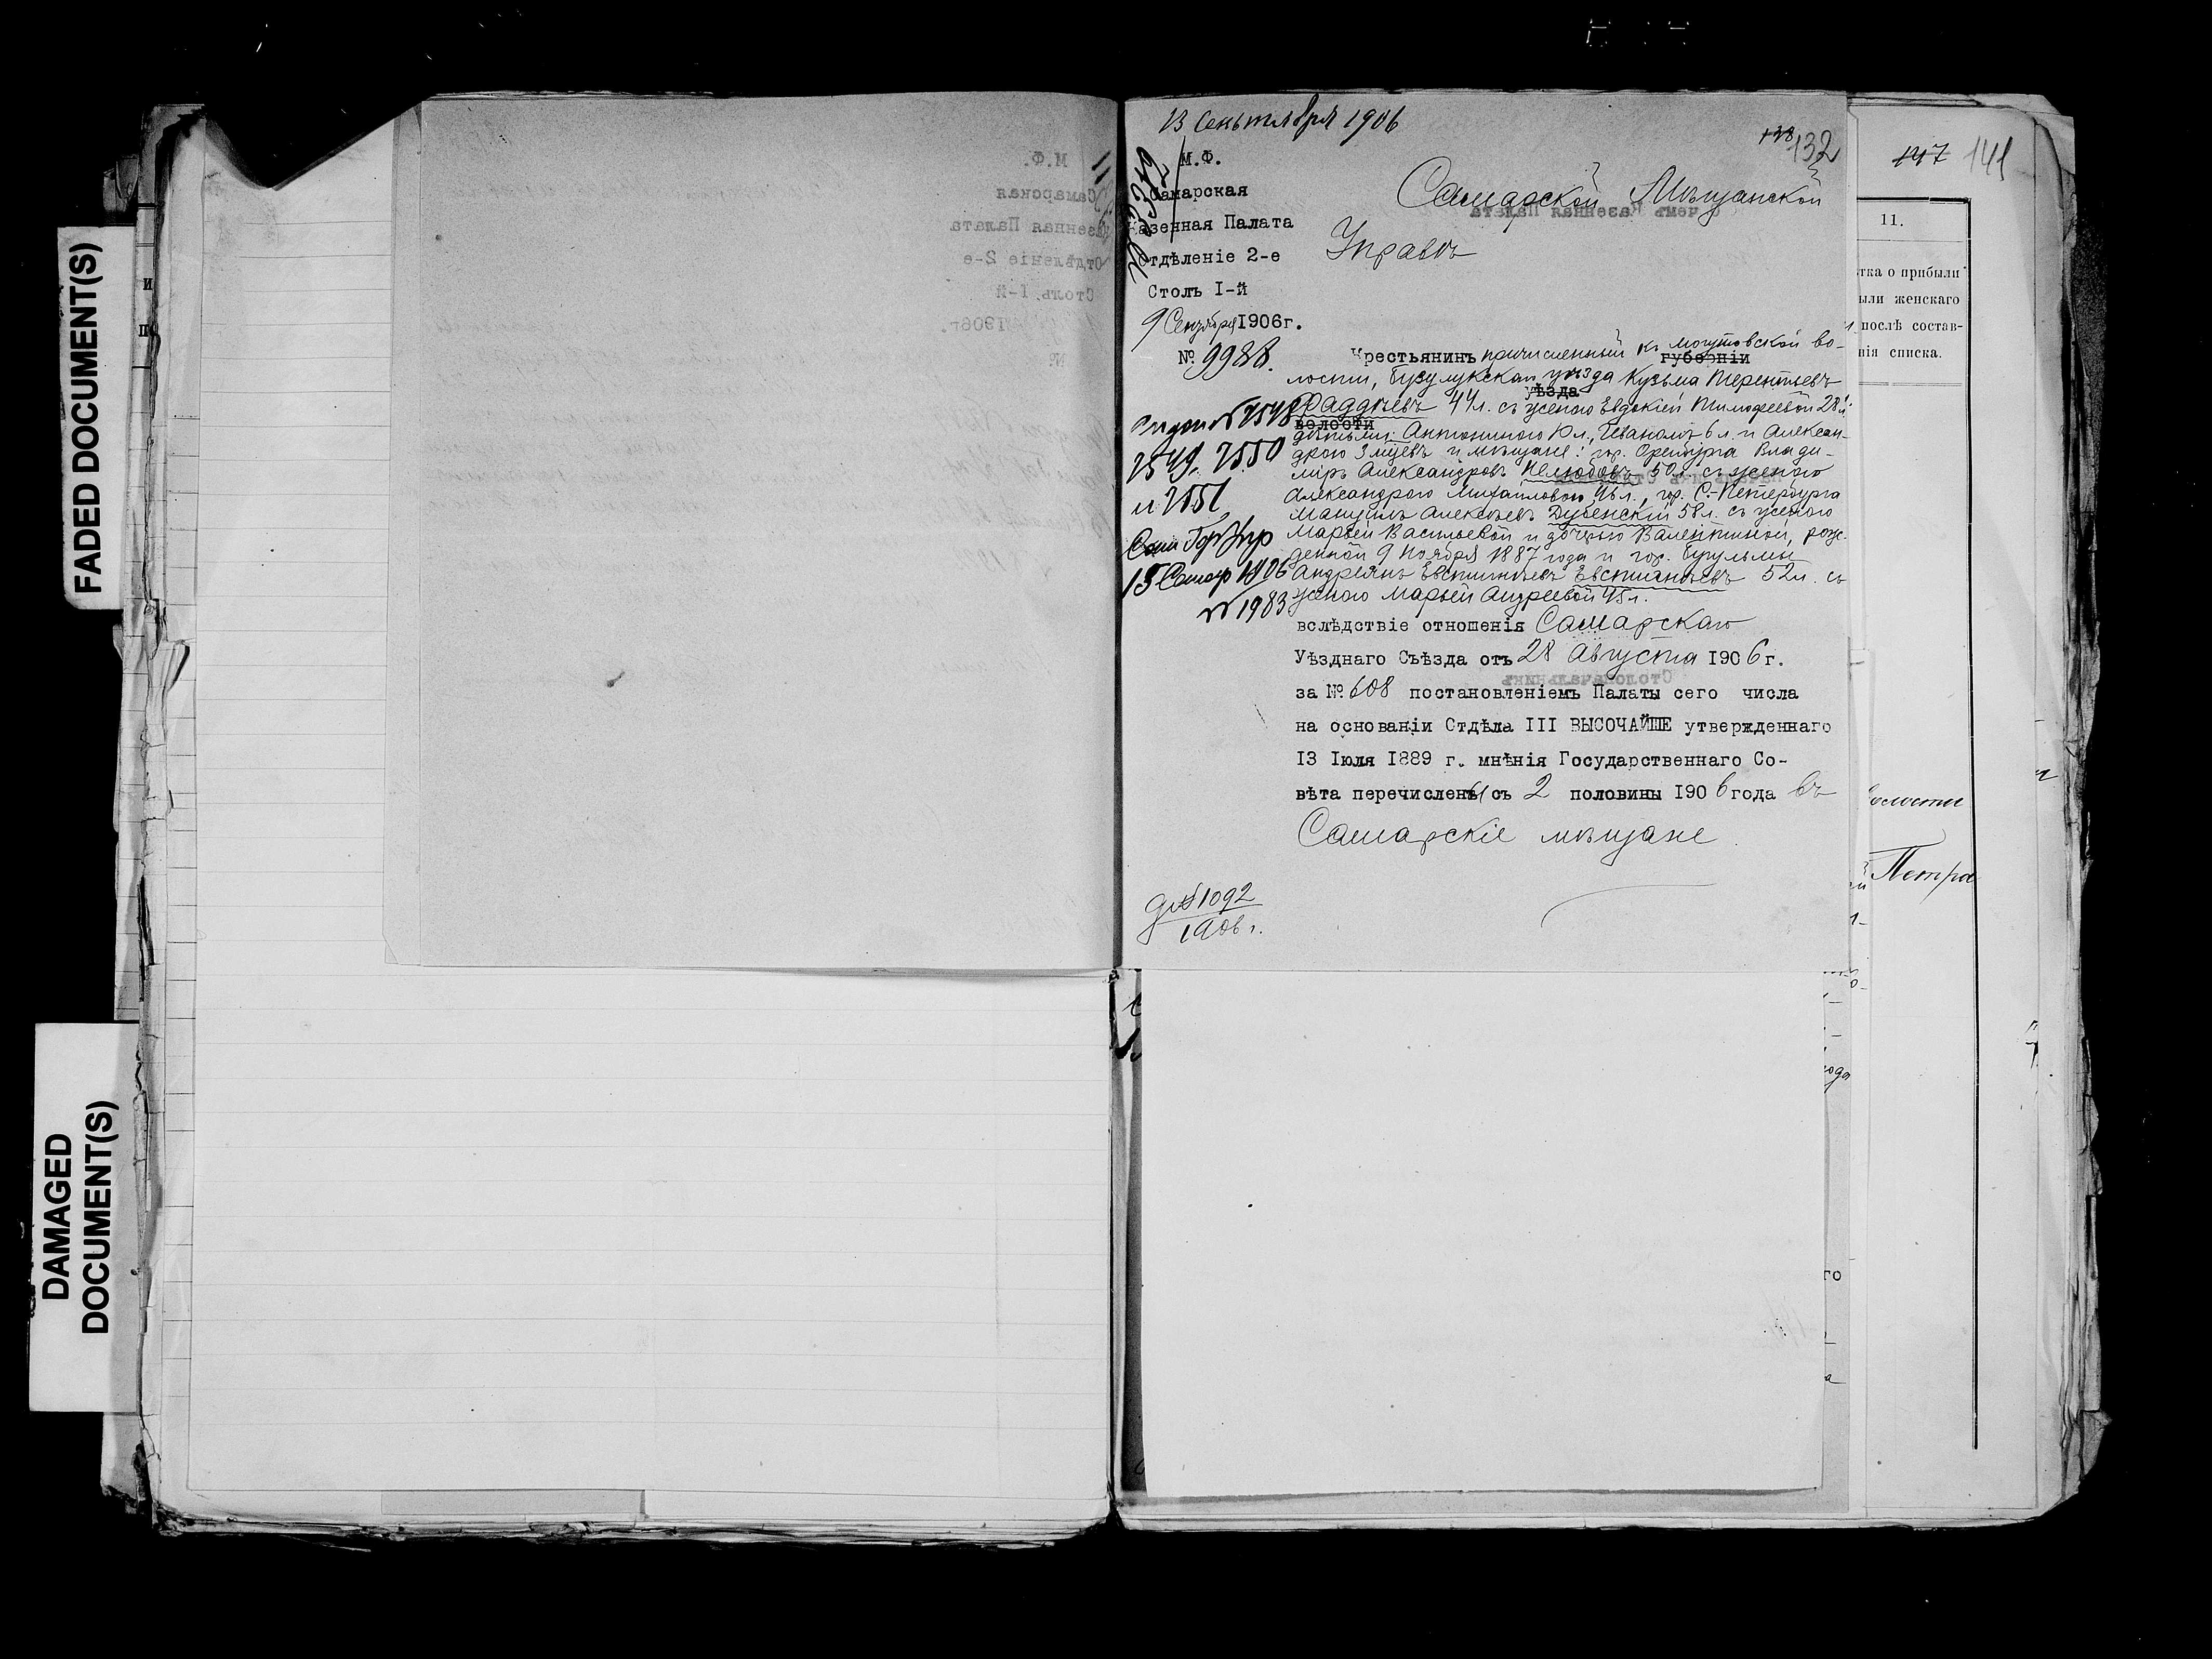 FADED DOCUMENT(S)
DAMAGED
DOCUMENT(S)
13 Сентября 1906
132
147 141
М.Ф.
Самарская
Казенная Палата
Отдѣленіе 2-е
Столъ I-й
9 Сентября 1906г.
№ 9988.
Самарской Мѣщанской
Управѣ
Крестьянинъ причисленный къ Могутовской во-
губерніи
лости, Бузулукскаго уѣзда Кузьма Терентьевъ
уѣзда
Фаддѣевъ 44 л. съ женою Евдокіей Тимофеевой 28 л.
волости
дѣтьми: Антониною 10 л., Иваномъ 6 л. и Алексан-
дрою 3 мцевъ и мѣщане: гор. Оренбурга Влади-
міръ Александровъ Нелюбовъ 50 л. съ женою
Александрою Михайловою 46 л., гор. С.-Петербурга
Мануилъ Алексѣевъ Дубенскій 58 л. съ женою
Марьей Васильевой и дочерью Валентиной, рож-
денной 9 Ноября 1887 года и гор. Бугульмы
Андреянъ Евстигнѣевъ Евстигнѣевъ 52 л. съ
женою Марьей Андреевой 45 л.
вслѣдствіе отношенія Самарскаго
Уѣзднаго Съѣзда отъ 28 Августа 1906 г.
за № 608 постановленіемъ Палаты сего числа
на основаніи Отдѣла III ВЫСОЧАЙШЕ утвержденнаго
13 Іюля 1889 г. мнѣнія Государственнаго Со-
вѣта перечислены съ 2 половины 1906 года въ
Самарскіе мѣщане
№ 2548
2549, 2550
и 2551
Сам Гор Упр
15 Сентяб 1906
№ 1983
д № 1092
1906 г.
11.
тка о прибыли
ыли женскаго
послѣ состав-
нія списка.
волости
Петра